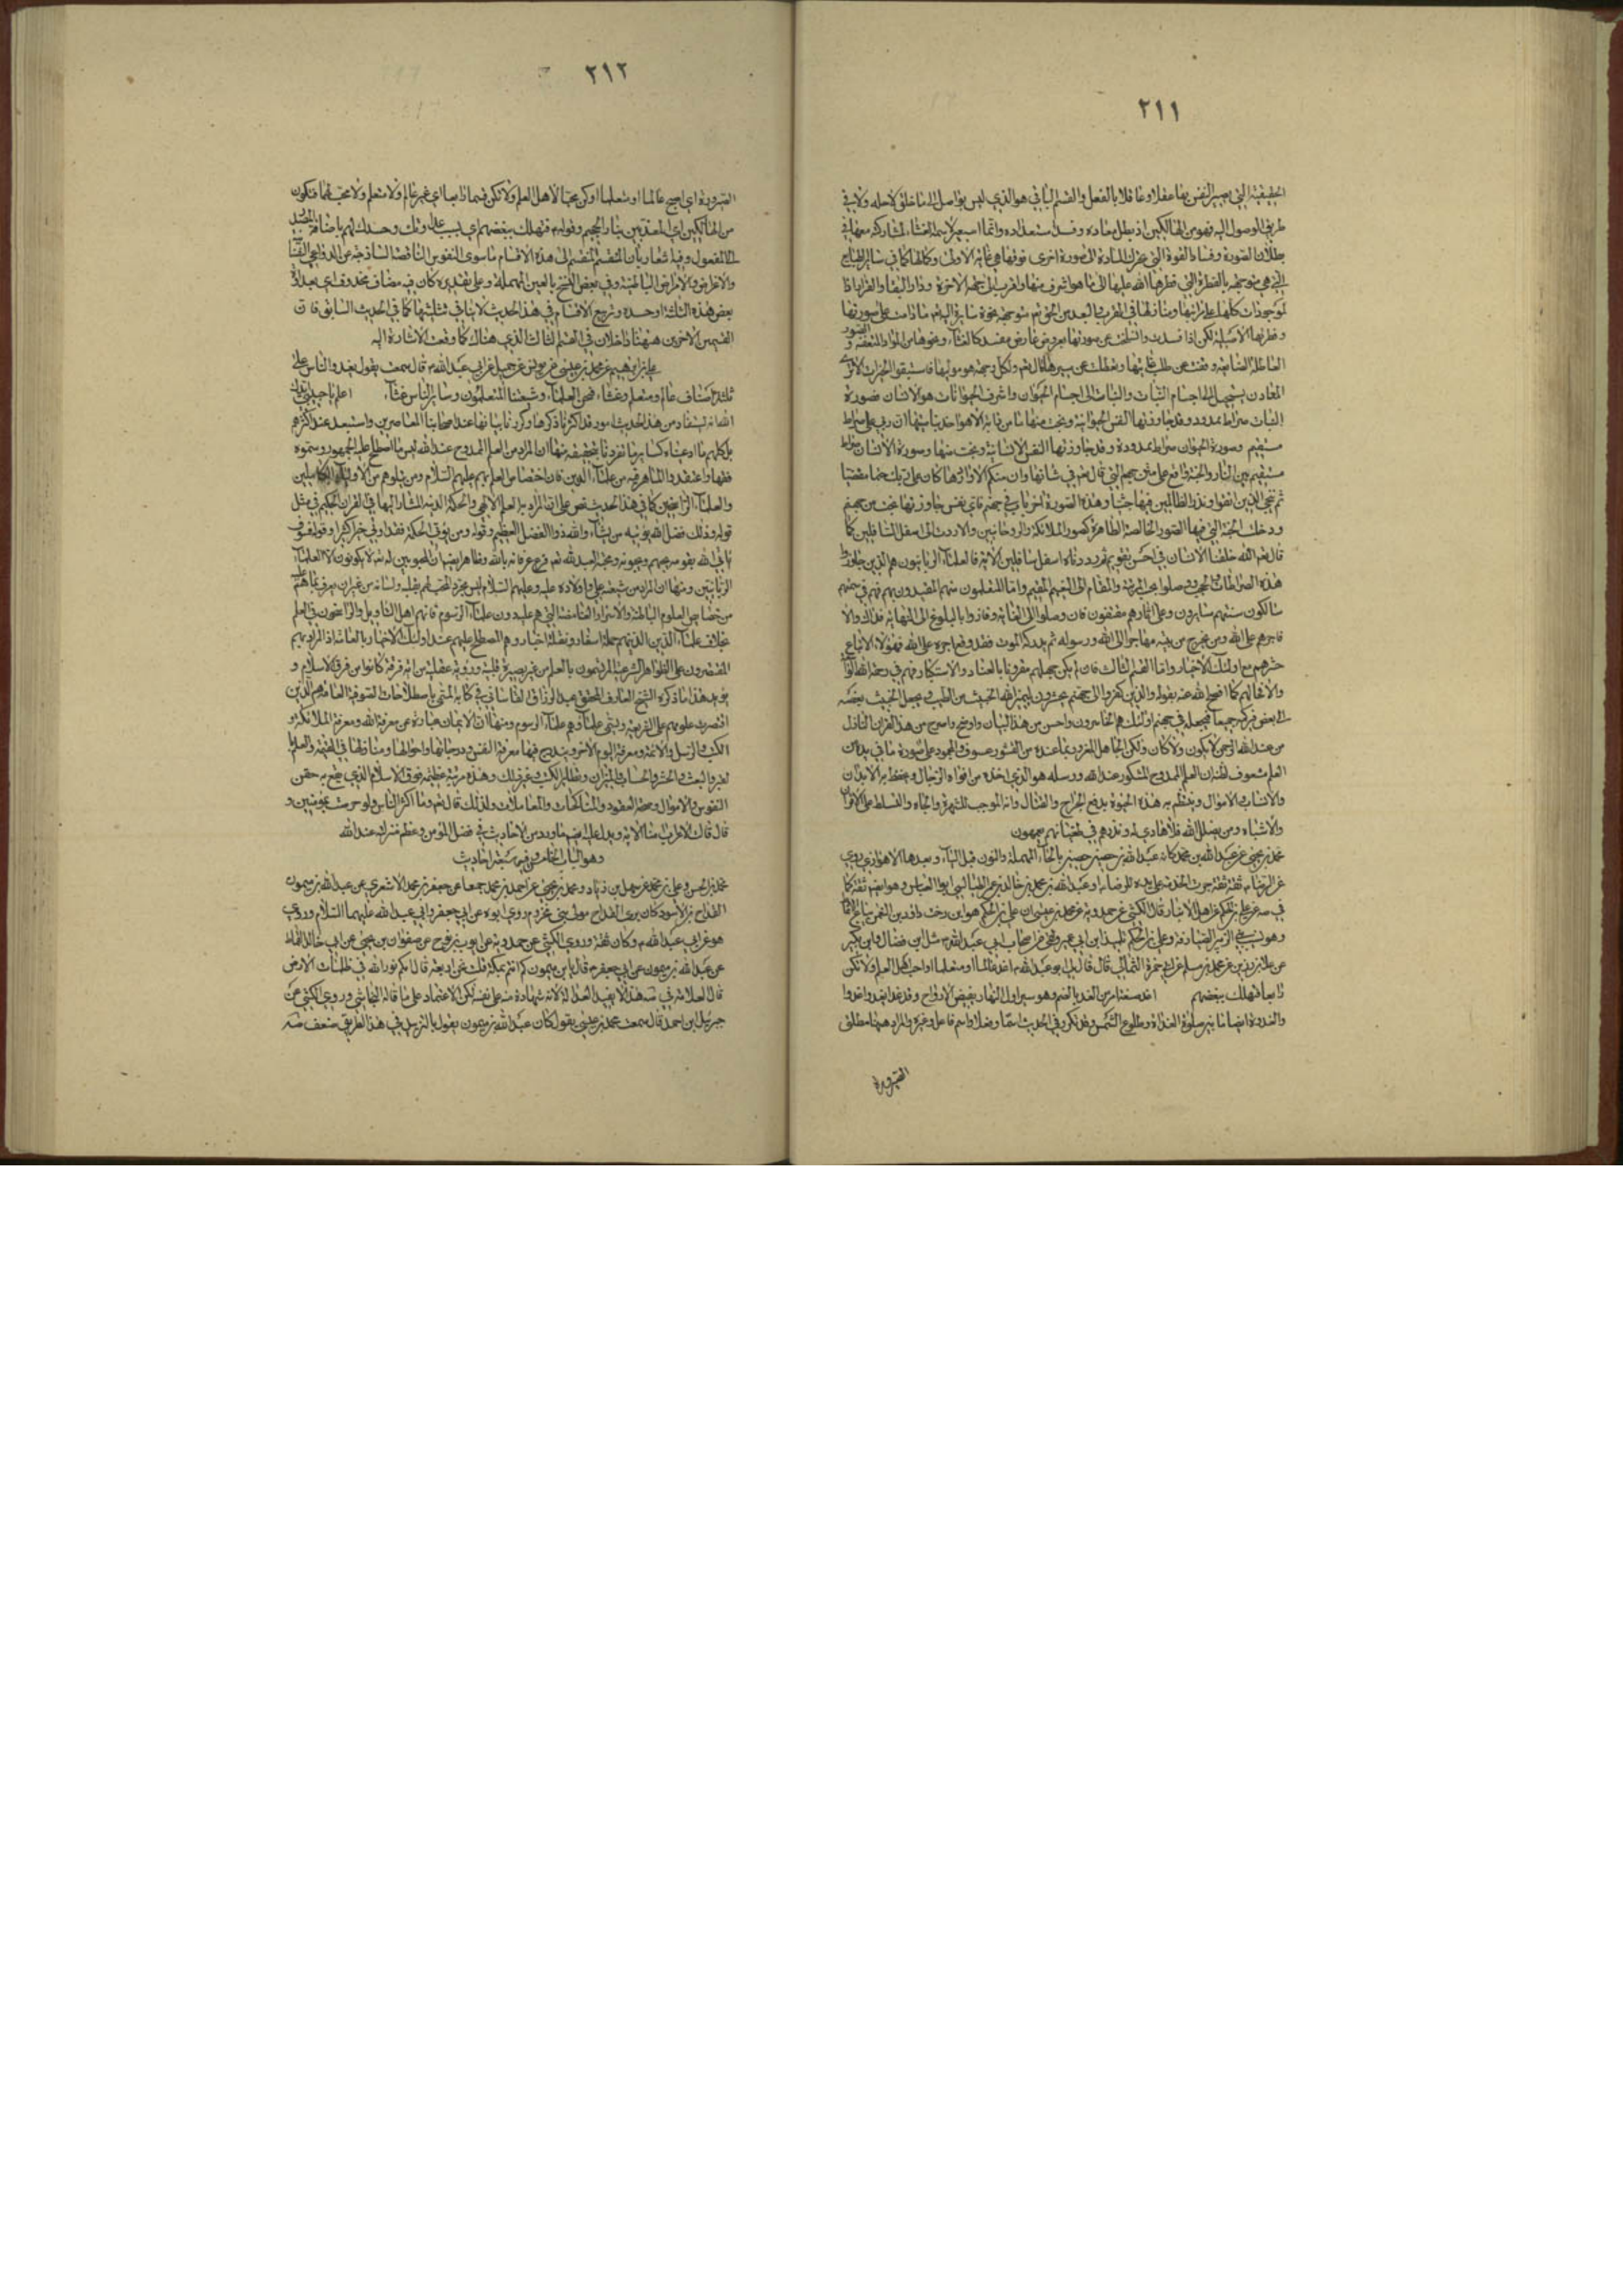 ٢١١
الحقيقية التي بها يصير النفس عقلا وعاقلا بالفعل والقسم الثاني هو الذي ليس بواصل الى ما خلق لاجله ولا في
طريق الوصول اليه فهو من الهالكين اذ بطل معاده وفسد استعداده وانما استعير لاسمه الغثاء لمشاركته معها في
بطلان الصورة وفساد القوة التي تحرك المادة الى صورة اخرى فوقها هي غاية الاولى وكمالها كما في سائر الطبايع
التي هي متوجهة بالفطرة التي فطرها الله عليها الى ما هو اشرف منها واقرب الى جهة الاخرة ودار البقاء والقرار اذ
الموجودات كلها على مراتبها ومنازلها في القرب والبعد من الحق تعالى متوجهة نحوه سايرة اليه ما دامت على صورتها
وفطرتها الاصلية لكن اذا فسدت وانسلخت عن صورتها بعروض عارض مفسد كالغثاء ونحوها من المواد المتعفنة و الصور
الباطلة الضايعة وقفت عن طلب غايتها وتعطلت عن سيرها كما قال تعالى ولكل وجهة هو موليها فاستبقوا الخيرات الا ترى
المعادن يستحيل الى اجسام النبات والنبات الى اجسام الحيوان واشرف الحيوانات هو الانسان فصورة
النبات صراط ممدود وقد جاوزتها النفس الحيوانية ونجت منها ما من دابة الا هو اخذ بناصيتها ان ربي على صراط
مستقيم وصورة الحيوان صراط ممدودة وقد جاوزتها النفس الانسانية ونجت منها وصورة الانسان صراط
مستقيم بين النار والجنة واقع على متن جهنم التي قال تعالى في شانها وان منكم الا واردها كان على ربك حتما مقضيا
ثم ننجي الذين اتقوا ونذر الظالمين فيها جثيا وهذه الصورة اخر باب في جهنم فاي نفس جاوزتها نجت من جهنم
ودخلت الجنة التي فيها الصور الخالصة الطاهرة كصور الملائكة والروحانيين والا ردت الى اسفل السافلين كما
قال تعالى لقد خلقنا الانسان في احسن تقويم ثم رددناه اسفل سافلين الاية فالعلماء الربانيون هم الذين جاوزوا
هذه الصراطات ونجوا ووصلوا الى الجنة والمقام الى النعيم المقيم واما المتعلمون منهم المقتدون بهم فهم في سبيلهم
سالكون سنتهم سايرون وعلى اثارهم مقتفون فان وصلوا الى الغاية وفازوا بالبلوغ الى النهاية فذاك والا
فاجرهم على الله ومن يخرج من بيته مهاجرا الى الله ورسوله ثم يدركه الموت فقد وقع اجره على الله فهؤلاء الاتباع
حشرهم مع اولئك الاخيار واما القسم الثالث فان لم يكن جهلهم مقرونا بالعناد والاستكبار فهم في رحمة الله
والا فحالهم كما افصح الله عنه بقوله والذين كفروا الى جهنم يحشرون ليميز الله الخبيث من الطيب ويجعل الخبيث بعضه
على بعض فيركمه جميعا فيجعله في جهنم اولئك هم الخاسرون واحسن من هذا البيان واوضح واصرح من هذا القران النازل
من عند الله الرحمن لا يكون ولا كان ولكن الجاهل المغرور بما عنده من القشور مشعوف والجمود على صورة ما في يده من
العلم مشعوف لظنه ان العلم الممدوح المشكور عند الله ورسله هو الذي اخذه من افواه الرجال ويحفظ به الابدان
والانساب والاموال وينتظم به هذه الحيوة بدفع الجراح والقتال وانه الموجب للشهرة والجاه والتسلط على الاقران
والاشباه ومن يضلل الله فلا هادي له ونذرهم في طغيانهم يعمهون
محمد بن يحيى عن عبد الله بن محمد كانه عبد الله بن حصين بالحاء المهملة والنون قبل الياء وبعدها الاهوازي روى
عن الرضا ثقة ثقة جرت الخدمة على يده للرضا او عبد الله بن محمد بن خالد بن عمر الطيالسي ابو العباس وهو ايضا ثقة كما
في صه عن علي بن الحكم من اهل الانبار قال الكشي عن حمدويه عن محمد بن عيسى ان علي بن الحكم هو ابن اخت داود بن النعمن بياع الانماط
وهو نسيب بني الزبير الصيارفة وعلي بن الحكم تلميذ ابن ابي عمير ولقي من اصحاب ابي عبد الله مثل ابن فضال وابن بكير
عن علا بن رزين عن محمد بن مسلم عن ابي حمزة الثمالي قال قال لي ابو عبد الله اغد عالما او متعلما او احب اهل العلم ولا تكن
رابعا فتهلك ببغضهم اغد صيغة امر من الغد بالضم وهو سير اول النهار نقيض الرواح وقد غدا يغدو غدوا
والغدوة ايضا ما بين صلوة الغداة وطلوع الشمس وقد تكرر في الحديث اسما وفعلا واسم فاعل وغيره والمراد ههنا مطلق
الصيرورة
٢١٢
الصيرورة اي اصبح عالما او متعلما او كن محبا لاهل العلم ولا تكن قسما رابعا اي غير عالم ولا متعلم ولا محب لهما فتكون
من الهالكين اي المعذبين بنار الجحيم وقوله فتهلك ببغضهم اي بسبب عداوتك وحسدك لهم باضافة المصدر
الى المفعول وفيه اشعار بان المقسم المنقسم الى هذه الاقسام ما سوى النفوس الناقصة الساذجة عن الدواعي النفسانية
والاغراض والامراض الباطنية وفي بعض النسخ بالعين المهملة وعلى تقديره كان فيه مضاف محذوف اي بعداوة
بعض هذه الثلثة او حسده وتربيع الاقسام في هذا الحديث لا ينافي تثليثها كما في الحديث السابق فان
القسمين الاخيرين ههنا داخلان في القسم الثالث الذي هناك كما وقعت الاشارة اليه
علي بن ابراهيم عن محمد بن عيسى عن يونس عن جميل عن ابي عبد الله قال سمعته يقول يغدو الناس على
ثلثة اصناف عالم ومتعلم وغثاء فنحن العلماء وشيعتنا المتعلمون وسائر الناس غثاء اعلم يا حبيبي
انه يستفاد من هذا الحديث امور قد اكثرنا ذكرها وكررنا بيانها عند اصحابنا المعاصرين واستبعد عند اكثرهم
بل كلهم ما ادعيناه كسايرها تفردنا بتحقيقه منها ان المراد من العلم الممدوح عند الله ليس ما اصطلح عليه الجمهور وسموه
فقها واعتقدوا الماهر فيه من علماء الدين فان اختصاص العلم بهم عليهم السلام ومن يتلوهم من الاولياء الكاملين
والعلماء الراسخين كما في هذا الحديث نص على ان المراد به العلم الالهي والحكمة الدينية المشار اليها في القران الحكيم في مثل
قوله وذلك فضل الله يؤتيه من يشاء والله ذو الفضل العظيم وقوله ومن يؤتى الحكمة فقد اوتي خيرا كثيرا وقوله فسوف
ياتي الله بقوم يحبهم ويحبونه ومحبة العبد لله تعالى فرع عرفانه بالله وظاهر ايضا ان المحبوبين له تعالى لا يكونون الا العلماء
الربانيين ومنها ان المراد من شيعة علي واولاده عليه وعليهم السلام ليس مجرد المحب لهم بقلبه ولسانه من غير ان يعرف ما هم عليه
من خصايص العلوم الباطنة والاسرار الغامضة التي هم عليه دون علماء الرسوم فانهم اهل التاويل والراسخون في العلم
بخلاف علماء الدين الذين هم حملة اسفار ونقلة اخبار وهم المصطلح عليهم عند اولئك الاخيار بالعامة اذ المراد بهم
المقتصرون على الظواهر الشرعية المترسمون بالعلم من غير بصيرة قلبية ورؤية عقلية من اية فرقة كانوا من فرق الاسلام و
يؤيد هذا ما ذكره الشيخ العارف المحقق عبد الرزاق القاساني في كتابه المسمى باصطلاحات الصوفية العامة هم الذين
اقتصرت علومهم على الشريعة ويسمى علماؤهم علماء الرسوم ومنها ان الايمان عبارة عن معرفة الله ومعرفة الملائكة و
الكتب والرسل والائمة ومعرفة اليوم الاخر ويندرج فيها معرفة النفس ودرجاتها واحوالها ومنازلها في الحقيقة والعلم
بامر البعث والحشر والحساب والميزان وتطاير الكتب وغير ذلك وهذه مرتبة عظيمة فوق الاسلام الذي يقع به حقن
النفوس والاموال وصحة العقود والمناكحات والمعاملات ولذلك قال تعالى وما اكثر الناس ولو حرصت بمؤمنين و
قال قالت الاعراب امنا الاية ويدل عليه ايضا ما ورد من الاحاديث في فضل المؤمن وعظم منزلته عند الله
وهو الباب الخامس وفيه تسعة احاديث
محمد بن الحسن وعلي بن محمد عن سهل بن زياد ومحمد بن يحيى عن احمد بن محمد جميعا عن جعفر بن محمد الاشعري عن عبد الله بن ميمون
القداح بن الاسود كان يبرى القداح مولى بني مخزوم روى ابوه عن ابي جعفر وابي عبد الله عليهما السلام وروى
هو عن ابي عبد الله وكان ثقة وروى الكشي عن حمدويه عن ايوب بن نوح عن صفوان بن يحيى عن ابي خالد القماط
عن عبد الله بن ميمون عن ابي جعفر قال يا بن ميمون كم انتم بمكة قلت نحن اربعة قال انكم نور الله في ظلمات الارض
قال العلامة في صه هذا لا يفيد العدالة لانه شهادة منه على نفسه لكن الاعتماد على ما قاله النجاشي وروى الكشي عن
جبرئيل ابن احمد قال سمعت محمد بن عيسى يقول كان عبد الله بن ميمون يقول بالتزيد وفي هذا الطريق ضعف صه